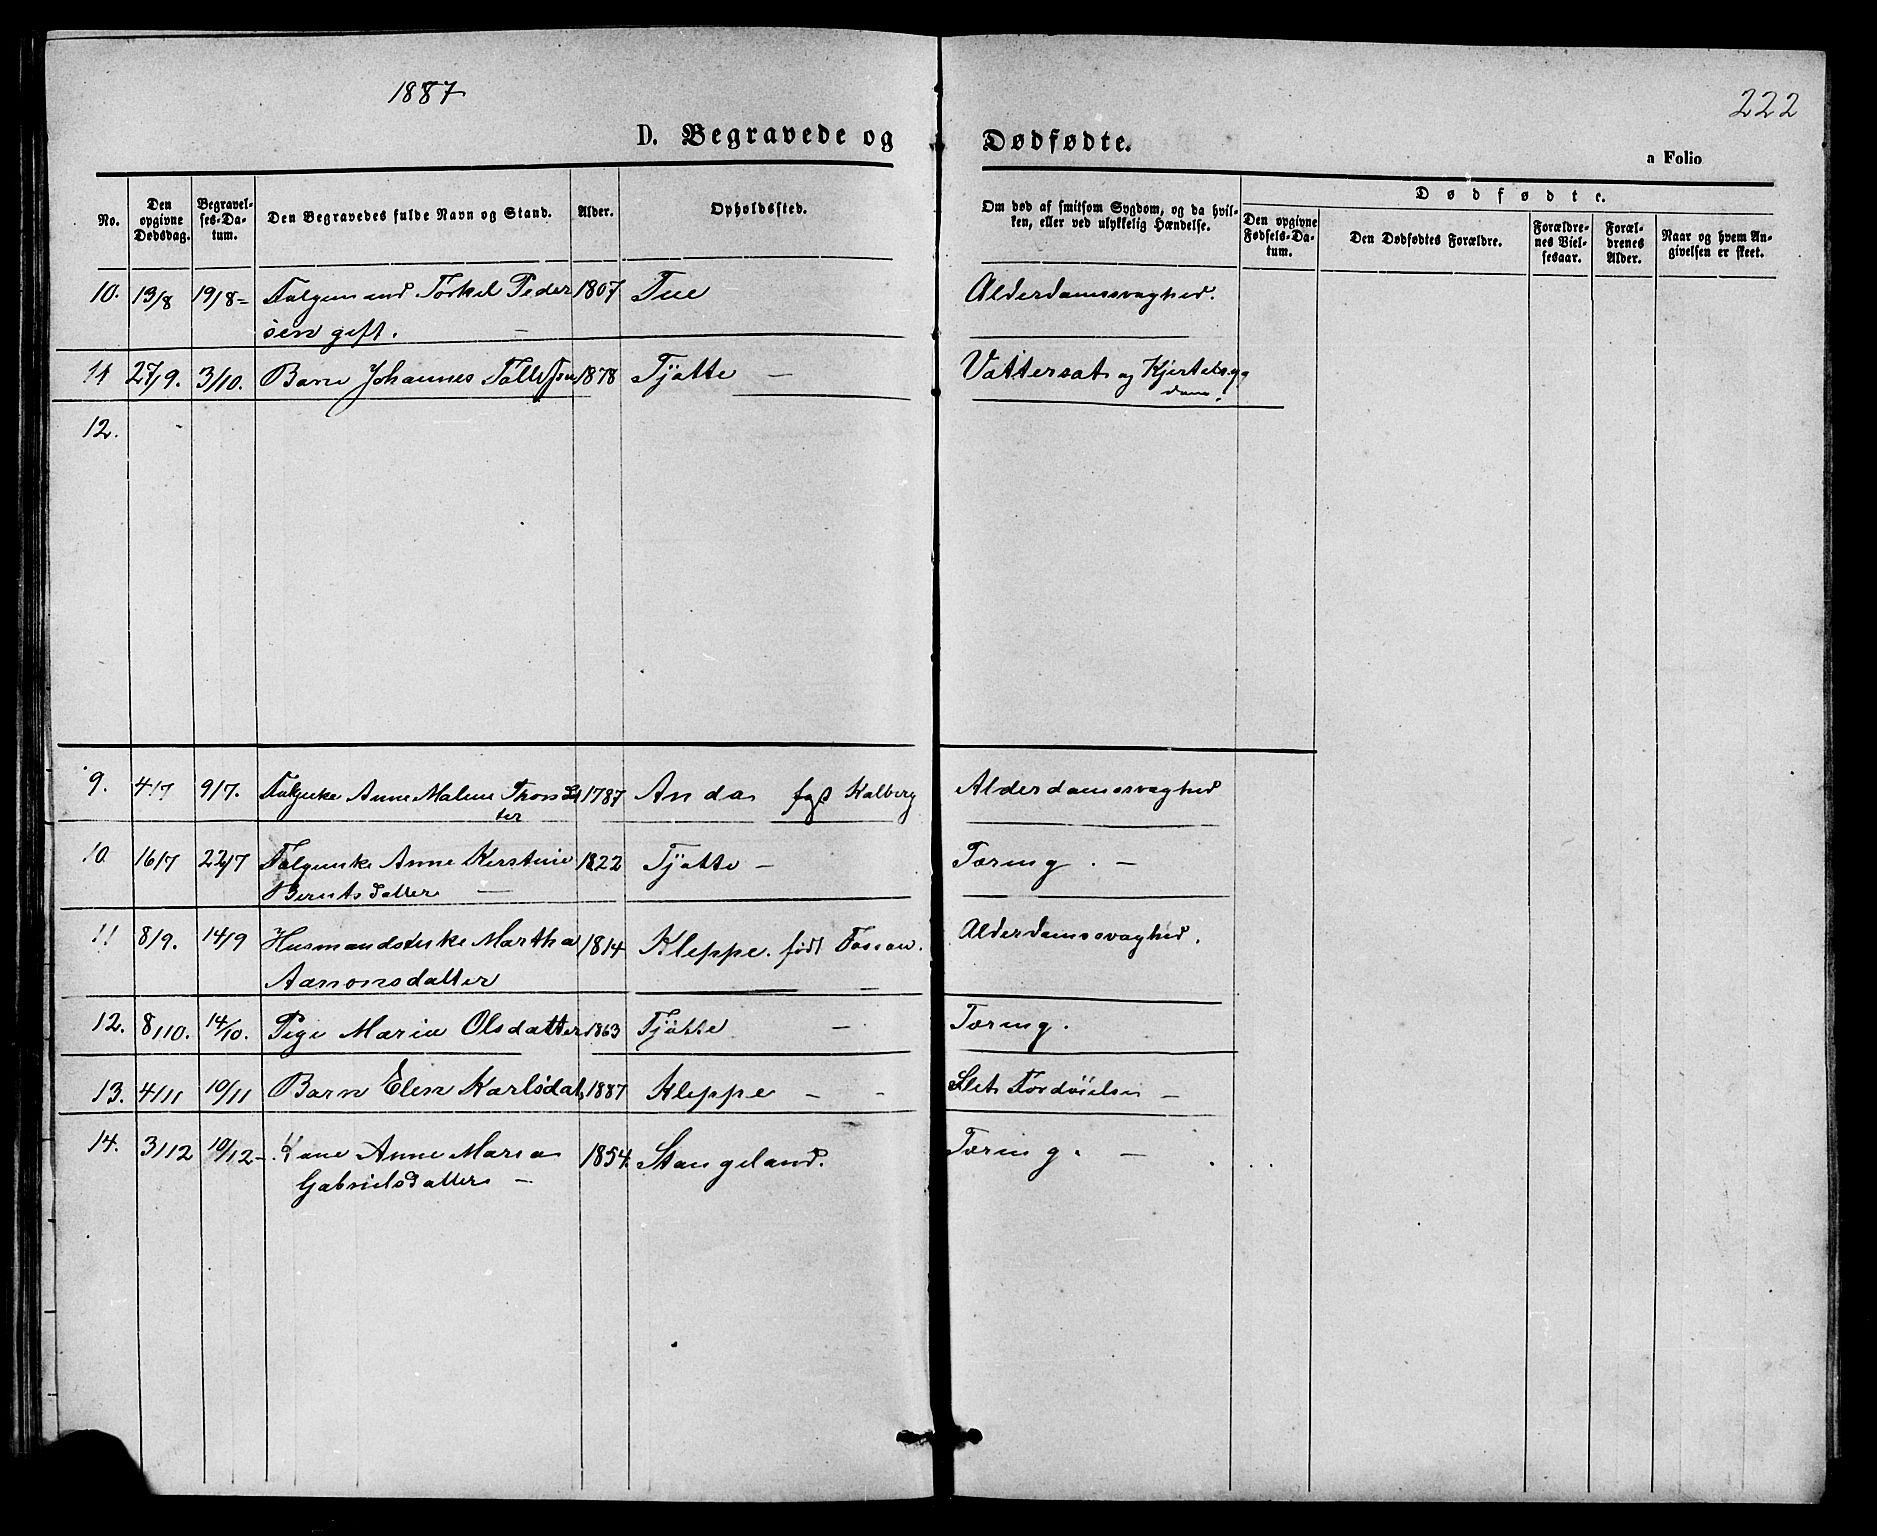 1887
222
D. Begravede og Dødfødte.
a Folio
No.
Den opgivne Dødsdag.
Begravelses-Datum.
Den Begravedes fulde Navn og Stand.
Alder.
Opholdssted.
Om død af smitsom Sygdom, og da hvilken, eller ved ulykkelig Hændelse.
Dødfødte.
Den opgivne Fødsels-Datum.
Den Dødfødtes Forældre.
Forældrenes Vielsesaar.
Forældrenes Alder.
Naar og hvem Angivelsen er skeet.
10. 13/8 19/8- Folgemand Torkel Peder 1807 Tue Alderdomssvaghed.
sen gift. -
11 27/9. 3/10. Barn Johannes Tollefsen 1878 Tjøtte - Vattersot og Kjertelsyg
dom.
12.
9. 4/7 9/7. Folgeke Anne Malene Thorsdt 1787 Anda fgt Kalberg Alderdomssvaghed
ter
10 16/7 22/7 Folgeenke Anne Kerstine 1822 Tjøtte - Tæring. -
Berntsdatter -
11 8/9. 14/9 Husmandsenke Martha 1814 Kleppe. født Fossan. Alderdomssvaghed.
Aanonsdatter
12. 8/10. 14/10. Pige Maria Olsdatter 1863 Tjøtte - Tæring.
13. 4/11 10/11 Barn Elen Karlsdat 1887 Kleppe - - Slet Fordøielse -
14. 3/12 10/12-. Kone Anne Maria 1854. Stangeland. Tæring. -
Gabrielsdatter -